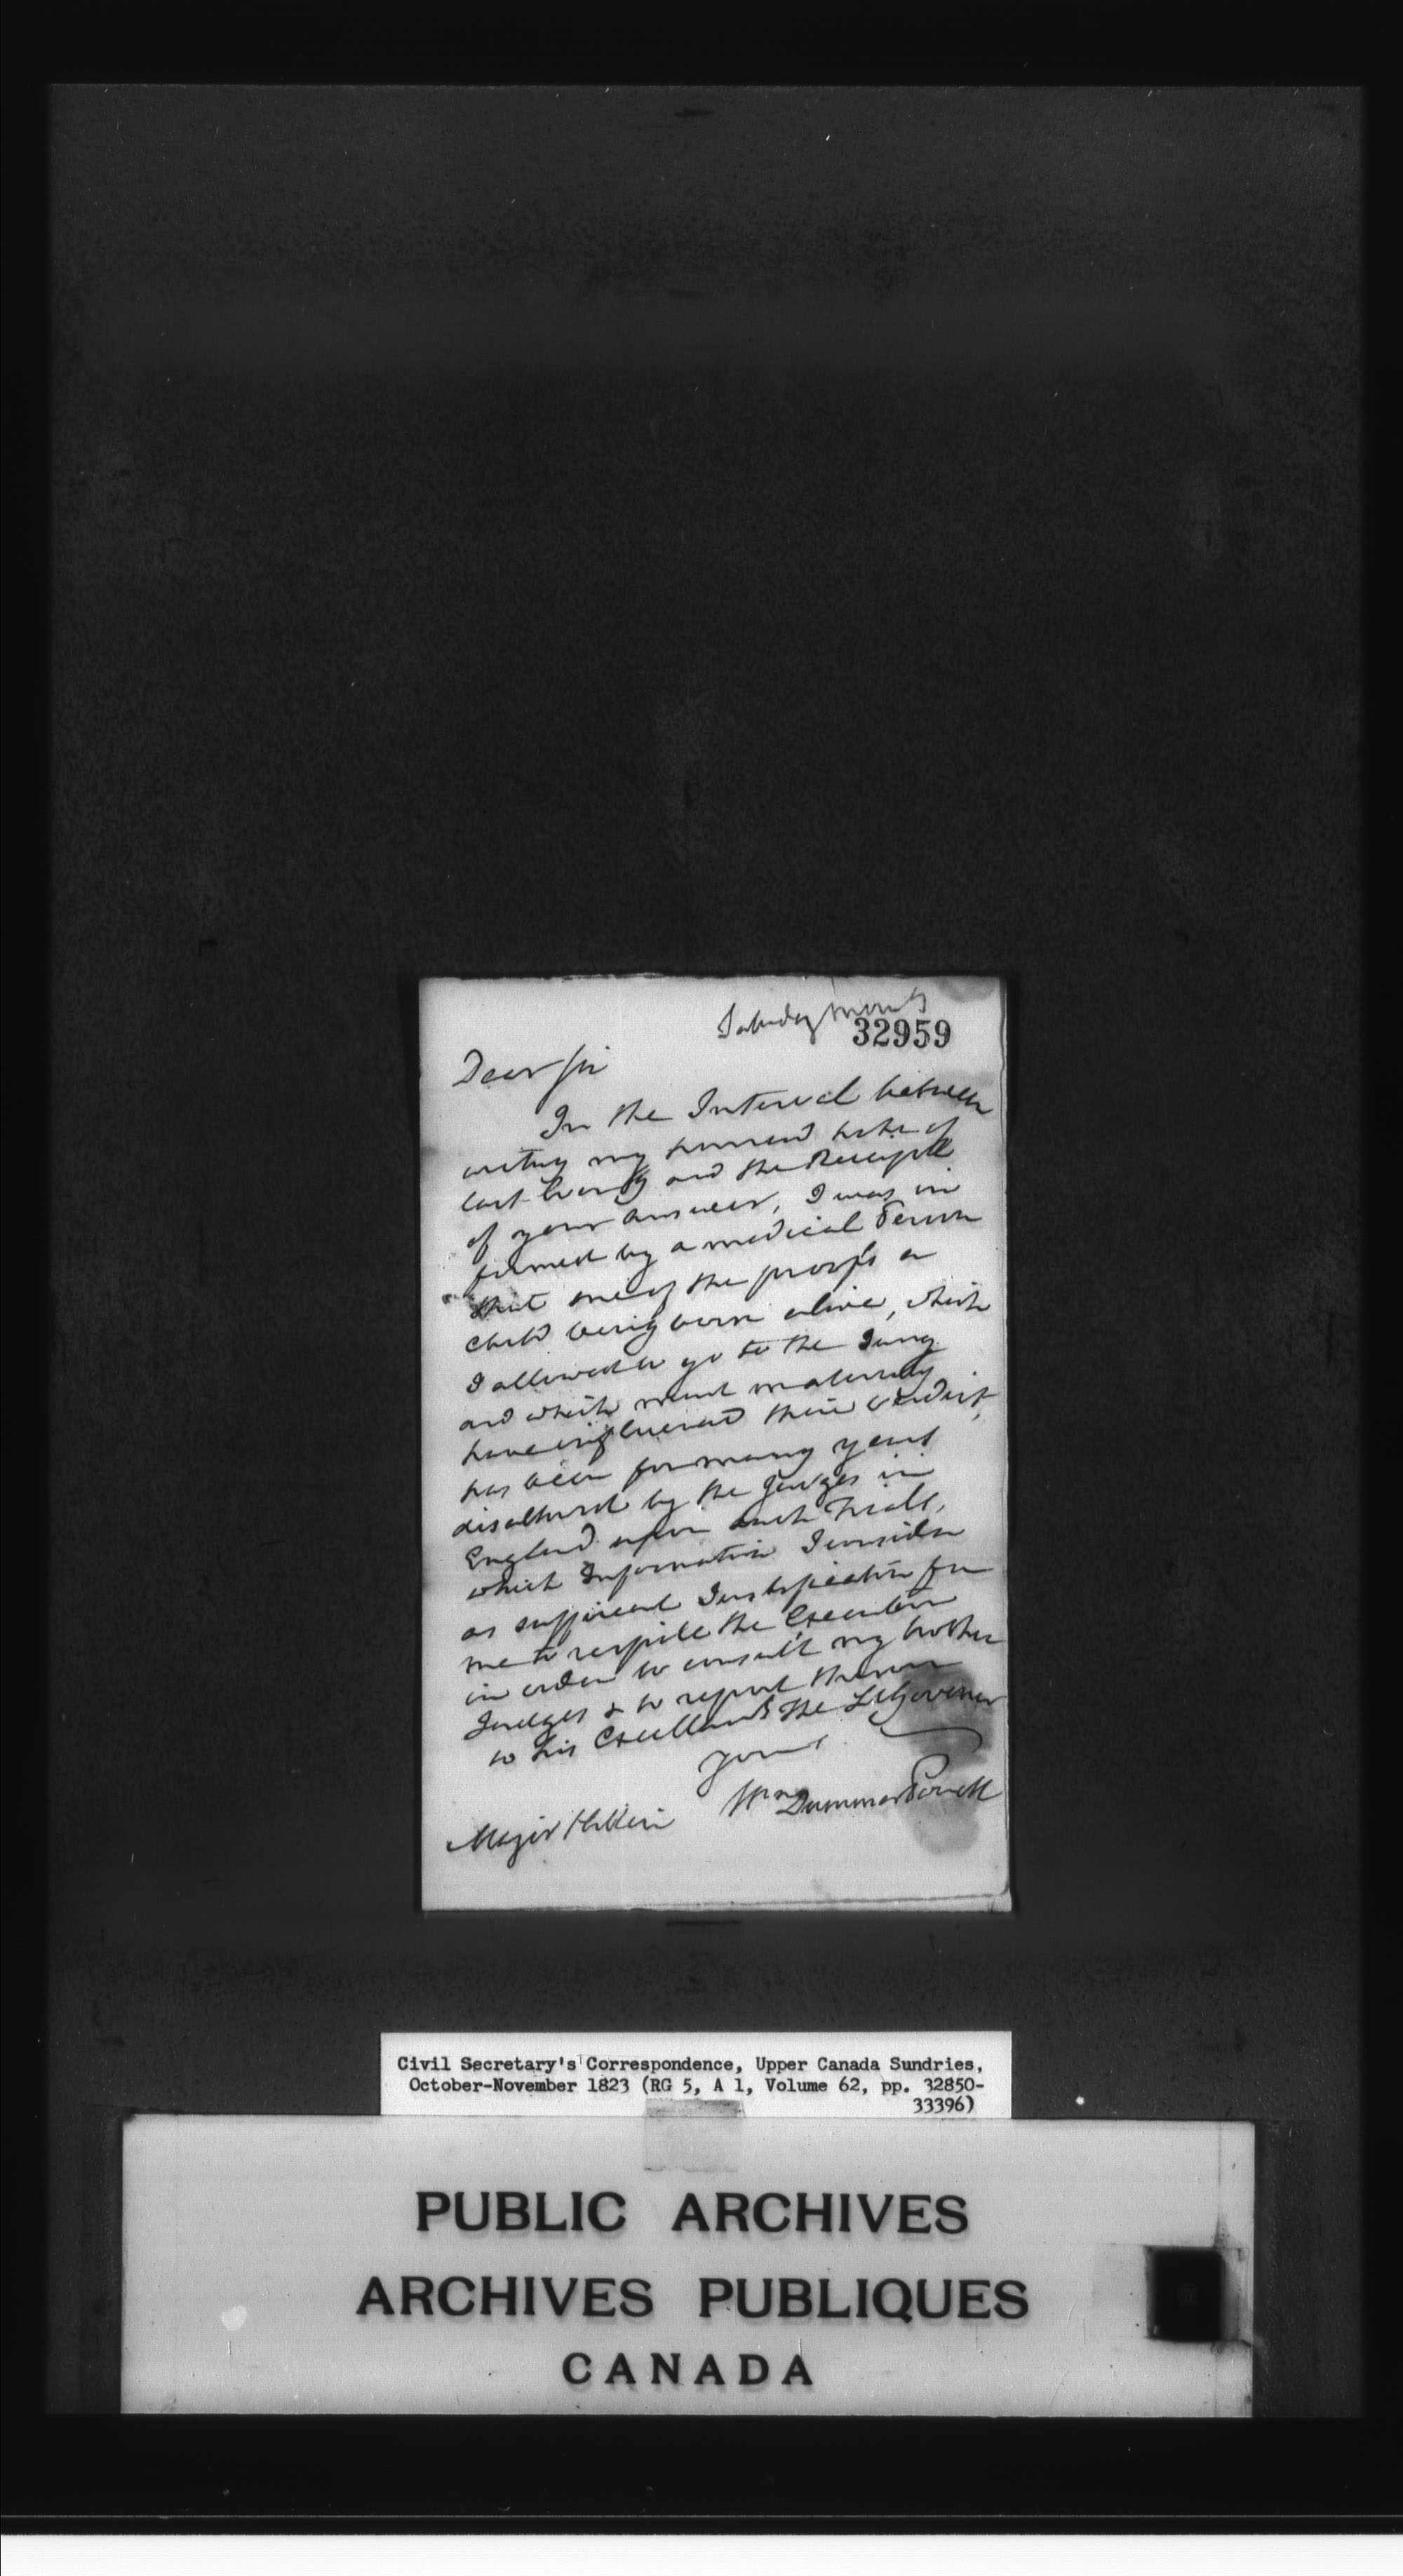 Saturday morng
32959
Dear Sir
In the Interval between
writing my hurried note of
last Eveng and the Receipt
of your answer, I was in
formed by a medical Person
that one of the proofs a
child being born alive, which
I allowed to go to the Jury
and which must materially
have influenced their verdict,
has been for many years
disallowed by the Judges in
England upon such Trials,
which Information I consider
as sufficient Justification for
me to respite the Execution
in order to consult my brother
Judges & to report thereon
to his Excellency the Lt Governor
yours
Wm Dummer Powell
Major Hillier
Civil Secretary's Correspondence, Upper Canada Sundries,
October-November 1823 (RG 5, A 1, Volume 62, pp. 32850-
33396)
PUBLIC ARCHIVES
ARCHIVES PUBLIQUES
CANADA